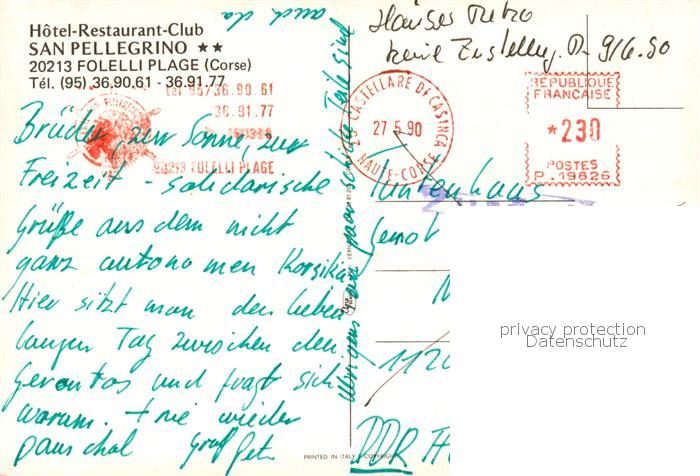 Hôtel-Restaurant-Club
SAN PELLEGRINO ★★
20213 FOLELLI PLAGE (Corse)
Tél. (95) 36.90.61 - 36.91.77
tel 95/36.90.61
36.91.77
20213 FOLELLI PLAGE
Brüder, zur Sonne, zur
Freizeit - solidarische
Grüße aus dem nicht
ganz autonomen Korsika
Hier sitzt man den lieben
langen Tag zwischen den
Gerontos und fragt sich
warum. nie wieder
pauschal Gruß Peter
übrigens ein paar nette Teile sind
auch da
PRINTED IN ITALY
COPYRIGHT
keine Zustellg. 9/6.90
20 CASTELLARE DI CASINCA
27 5 90
HAUTE-CORSE
REPUBLIQUE
FRANCAISE
*230
POSTES
P.19826
Tuntenhaus
Gernot
1120
DDR
privacy protection
Datenschutz